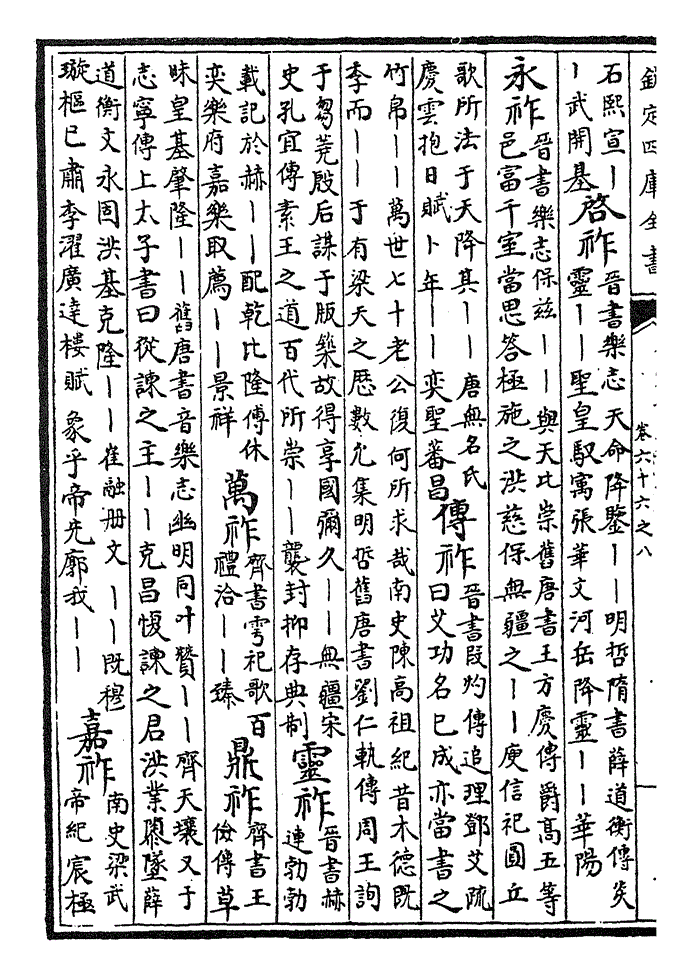 欽定四庫全書
卷六十六之八
石熙宣｜
｜武開基
啓祚
晉書樂志天命降鑒｜｜明哲隋書薛道衡傳炎
靈｜｜聖皇馭㝢張華文河岳降靈｜｜華陽
永祚
晉書樂志保兹｜｜與天比崇舊唐書王方慶傳爵髙五等
邑富千室當思答極施之洪慈保無疆之｜｜庾信祀圓丘
歌所法于天降其｜｜唐無名氏
慶雲抱日賦卜年｜｜奕聖蕃昌
傳祚
晉書段灼傳追理鄧艾疏
曰艾功名已成亦當書之
竹帛｜｜萬世七十老公復何所求哉南史陳高祖紀昔木德既
季而｜｜于有梁天之厯數允集明哲舊唐書劉仁軌傳周王詢
于芻蕘殷后謀于版築故得享國彌久｜｜無疆宋
史孔宜傳素王之道百代所崇｜｜襲封抑存典制
靈祚
晉書赫
連勃勃
載記於赫｜｜配乾比隆傅休
奕樂府嘉樂取薦｜｜景祥
萬祚
齊書雩祀歌百
禮洽｜｜臻
鼎祚
齊書王
儉傳草
昧皇基肇隆｜｜舊唐書音樂志幽明同叶贊｜｜齊天壤又于
志寧傳上太子書曰從諫之主｜｜克昌愎諫之君洪業隳墜薛
道衡文永固洪基克隆｜｜崔融册文｜｜既穆
璇樞已肅李濯廣達樓賦象乎帝先廓我｜｜
嘉祚
南史梁武
帝紀宸極